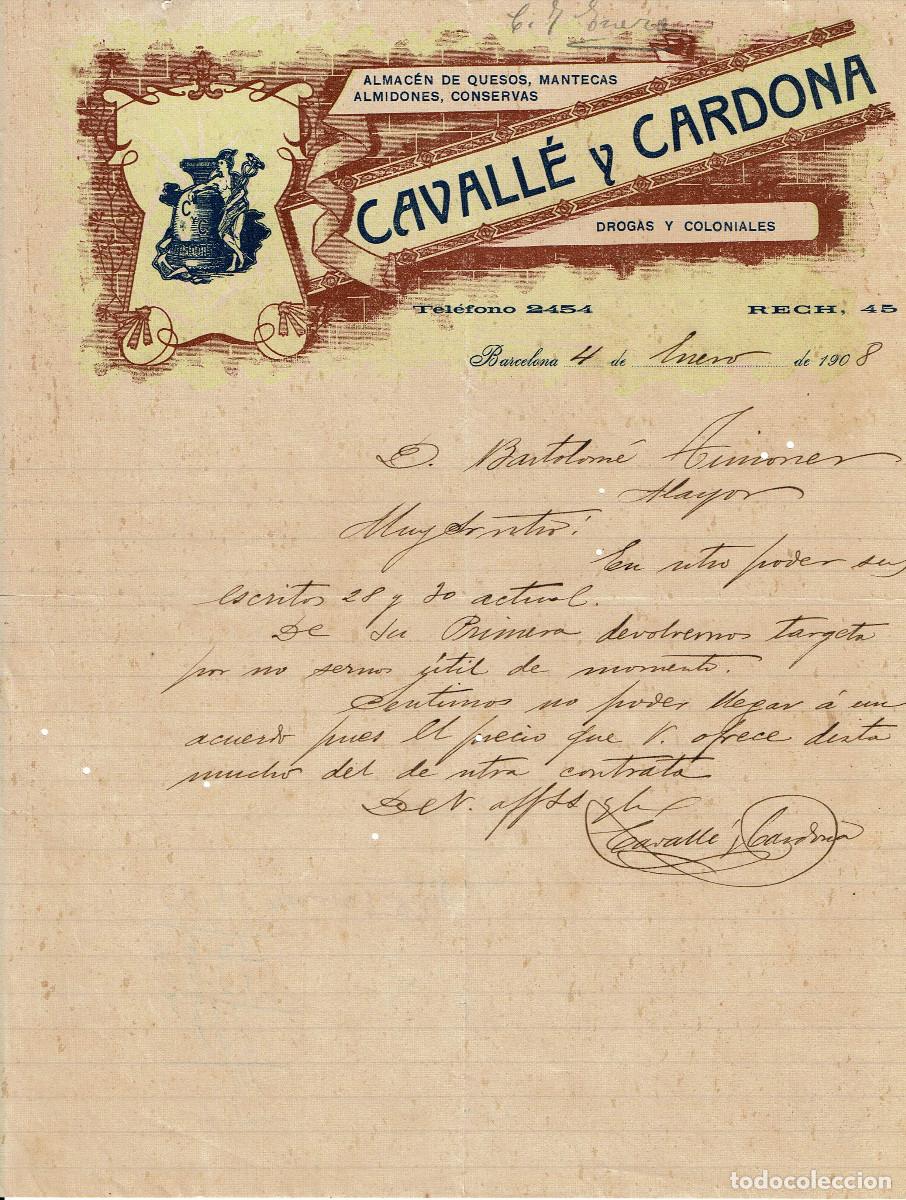 C. 7 Enero
ALMACÉN DE QUESOS, MANTECAS
ALMIDONES, CONSERVAS
CAVALLÉ Y CARDONA
C
C
DROGAS Y COLONIALES
Teléfono 2454 RECH, 45
Barcelona 4 de Enero de 1908
D. Bartolomé Timoner
Alayor
Muy Sr ntro:
En ntro poder sus
escritos 28 y 30 actual.
De su Primera devolvemos targeta
por no sernos útil de momento.
Sentimos no poder llegar á un
acuerdo pues el precio que V. ofrece dista
mucho del de ntra contrata
De V. affSS
Cavallé y Cardona
todocoleccion